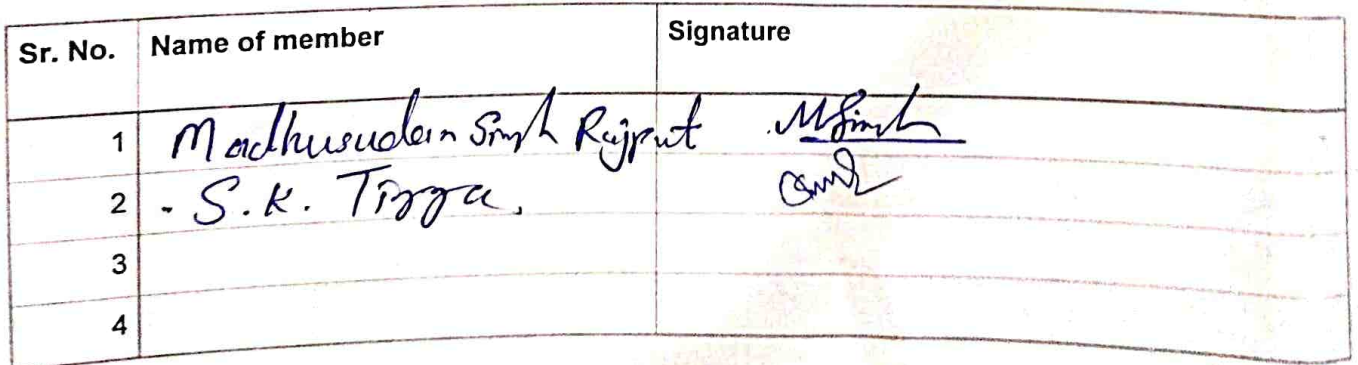 Sr. No. Name of member Signature
1 Madhusudan Singh Rajput MSingh
2 - S.K. Tigga.
3
4